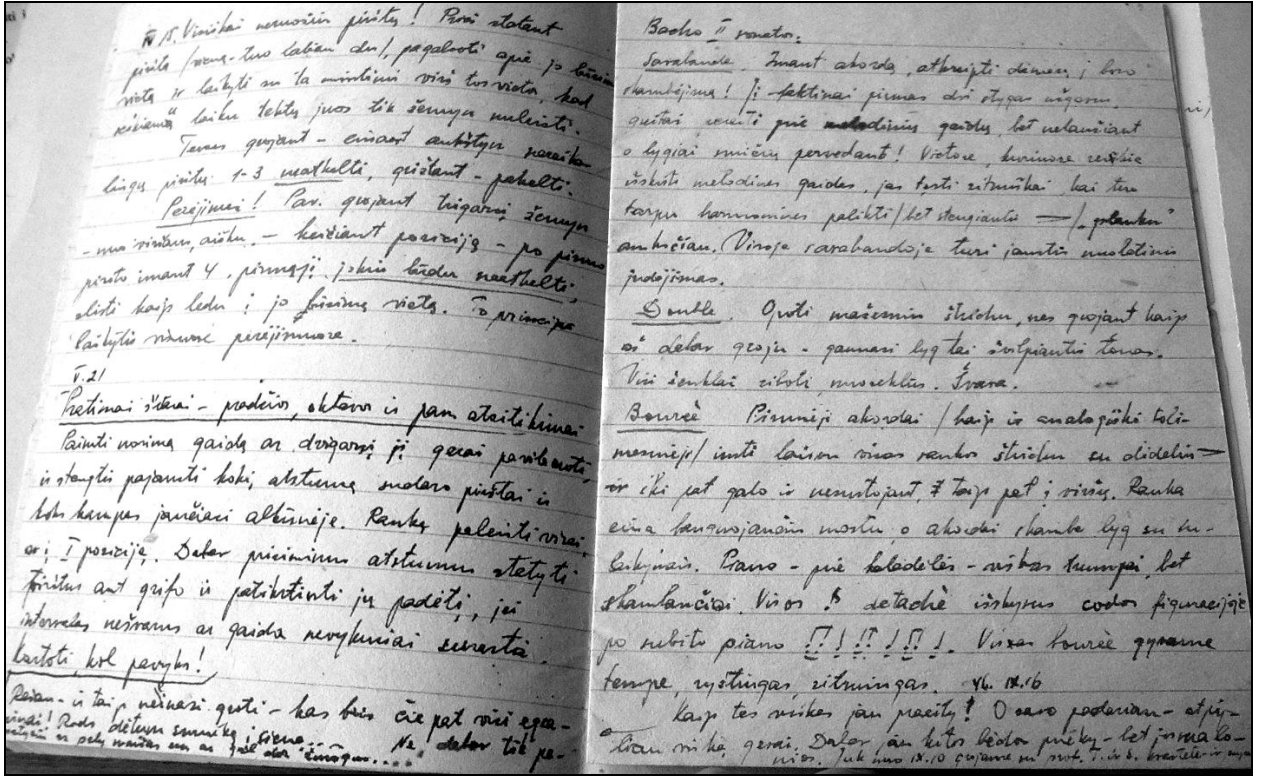 IV 15. Visiškai nemožiu pirštų! Prieš statant
pirštą /vieną-tuo labiau du/, pagalvoti apie jo būsimą
vietą ir laikyti su ta mintimi virš tos vietos, kad
reikiamu laiku tektų juos tik žemyn nuleisti.
Terces grojant - einant aukštyn nereika-
lingų pirštų 1-3 neatkelti, grįžtant - pakelti.
Perėjimai! Pav. grojant trigarsį žemyn
- nuo viršaus, aišku, - keičiant poziciją - po pirmo
piršto imant 4, pirmąjį jokiu būdu neatkelti,
slisti kaip ledu į jo būsimą vietą. To principo
laikytis visuose perėjimuose.
V.21
Pratimai štai - pradžios, oktavos ir pan. atsitikimai
Paimti norimą gaidą ar dvigarsį, jį gerai pavibruoti,
ir stengtis pajausti kokį atstumą sudaro pirštai ir
koks kampas jaučiasi alkūnėje. Ranką paleisti visai,
ar į I poziciją. Dabar prisiminus atstumus statyti
pirštus ant grifo ir patikrinti jų padėtį, jei
intervalas nešvarus ar gaida nevykusiai surasta.
Kartoti, kol pavyks!
ir taip neišnasi groti - kas bus čia pat visi egza-
minai! Rods dėtum smuiką į sieną... Ne, dabar tik pe-
Bacho II sonatos:
Sarabande. Imant akordą, atkreipti dėmesį į boso
skambėjimą! Jį faktinai pirmas dvi stygas užgavus,
greitai pereiti prie melodinių gaidų, bet nelaužiant
o lygiai smičių pervedant! Vietose, kuriose reiškia
išskirti melodines gaidas, jas tęsti ritmiškai, kai tuo
tarpu harmonines palikti /bet stengiantis → /„
anksčiau. Visoje sarabandoje turi jaustis nuolatinis
judėjimas.
Double. Groti mažesniu štrichu, nes grojant kaip
aš dabar groju - gaunasi lyg tai švilpiantis tonas.
Visi ženklai riboti nuoseklūs. Švara.
Bourée Pirmieji akordai /kaip ir analogiški toli-
mesnieji/ imti laisvu visos rankos štrichu su dideliu →
ir iki pat galo ir nesustojant, taip pat į viršų. Ranka
eina banguojančiu mostu, o akordai skamba lyg su su-
laikymais. Piano - prie kaladėlės - viskas trumpai, bet
skambančiai. Visos ♪ detachè išskyrus codos figuracijoje
po subito piano. Visas bourée gyvame
tempe, ryžtingas, ritmingas. 46. IX.16
Kaip tas viskas jau praeity! O savo padariau - atpy-
liau viską gerai. Dabar jau kitos bėdos